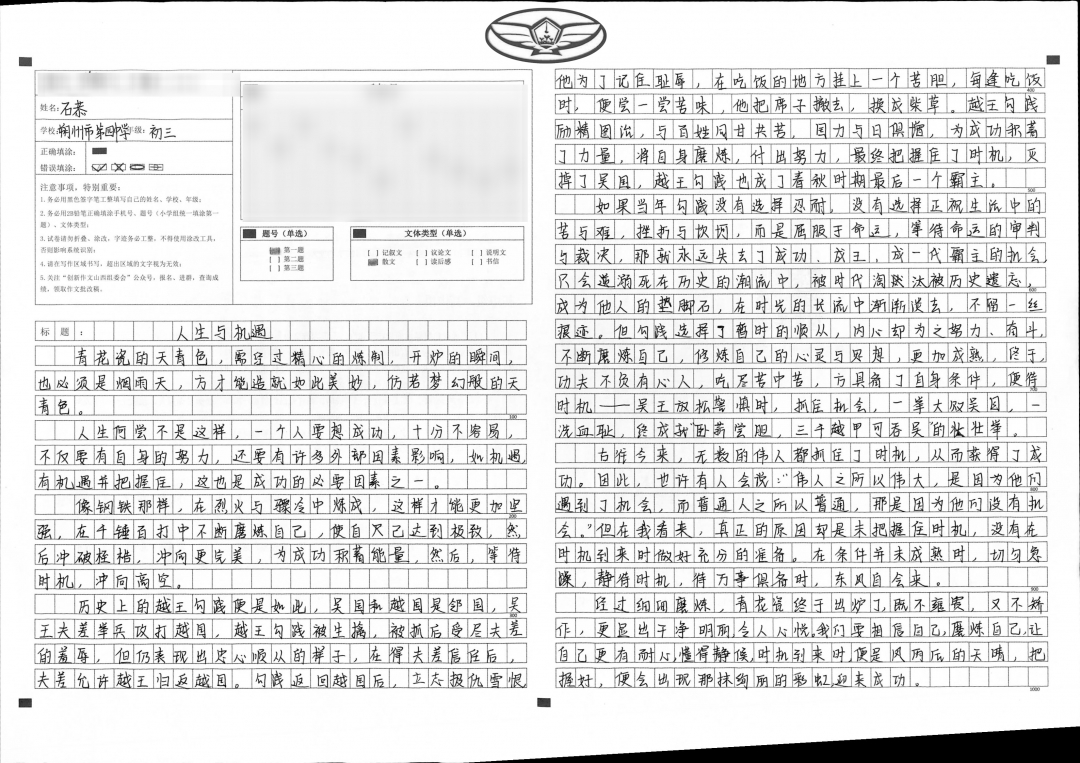 姓名：石泰
学校：朔州市第四中学 年级：初三
正确填涂：
错误填涂：
注意事项，特别重要：
1.务必用黑色签字笔工整填写自己的姓名、学校、年级；
2.务必用2B铅笔正确填涂手机号、题号（小学组统一填涂第一
题）、文体类型；
3.试卷请勿折叠、涂改，字迹务必工整，不得使用涂改工具，
否则影响系统识别；
4.请在写作区域书写，超出区域的文字视为无效；
5.关注“创新作文山西组委会”公众号，报名、进群，查询成
绩，领取作文批改稿。
题号（单选）
第一题
[ ] 第二题
[ ] 第三题
文体类型（单选）
[ ] 记叙文 [ ] 议论文 [ ] 说明文
散文 [ ] 读后感 [ ] 书信
标题：人生与机遇
青花瓷的天青色，需经过精心的炼制，开炉的瞬间，
也必须是烟雨天，方才能造就如此美妙，仿若梦幻般的天
青色。
100
人生何尝不是这样，一个人要想成功，十分不容易，
不仅要有自身的努力，还要有许多外部因素影响，如机遇，
有机遇并把握住，这也是成功的必要因素之一。
像钢铁那样，在烈火与骤冷中炼成，这样才能更加坚
200
强，在千锤百打中不断磨炼自己，使自己达到极致，然
后冲破桎梏，冲向更完美，为成功积蓄能量，然后，等待
时机，冲向高空。
历史上的越王勾践便是如此，吴国和越国是邻国，吴
300
王夫差举兵攻打越国，越王勾践被生擒，被抓后受尽夫差
的羞辱，但仍表现出忠心顺从的样子，在得夫差信任后，
夫差允许越王归返越国。勾践返回越国后，立志报仇雪恨
他为了记住耻辱，在吃饭的地方挂上一个苦胆，每逢吃饭
400
时，便尝一尝苦味，他把席子撤去，换成柴草。越王勾践
励精图治，与百姓同甘共苦，国力与日俱增，为成功积蓄
了力量，将自身磨炼，付出努力，最终把握住了时机，灭
500
掉了吴国，越王勾践也成了春秋时期最后一个霸主。
如果当年勾践没有选择忍耐，没有选择正视生活中的
苦与难，挫折与坎坷，而是屈服于命运，等待命运的审判
与裁决，那我永远失去了成功、成王，成一代霸主的机会，
只会逐溺死在历史的潮流中，被时代淘汰被历史遗忘，
600
成为他人的垫脚石，在时光的长流中渐渐淡去，不留一丝
痕迹。但勾践选择了暂时的顺从，内心却为之努力、奋斗，
不断磨炼自己，修炼自己的心灵与思想，更加成熟，终于，
功夫不负有心人，吃尽苦中苦，方具备了自身条件，便待
700
时机——吴王放松警惕时，抓住机会，一举大败吴国，一
洗血耻，终成就“卧薪尝胆，三千越甲可吞吴”的壮举。
古往今来，无数的伟人都抓住了时机，从而获得了成
功。因此，也许有人会说：“伟人之所以伟大，是因为他们
800
遇到了机会，而普通人之所以普通，那是因为他们没有机
会。”但在我看来，真正的原因却是未把握住时机，没有在
时机到来时做好充分的准备。在条件并未成熟时，切勿急
躁，静待时机，待万事俱备时，东风自会来。
900
经过细细磨炼，青花瓷终于出炉了，既不雍容，又不矫
作，更显出干净明丽，令人心悦。我们要相信自己，磨炼自己，让
自己更有耐心，懂得静候，时机到来时，便是风雨后的天晴，把
握好，便会出现那抹绚丽的彩虹，迎来成功。
1000